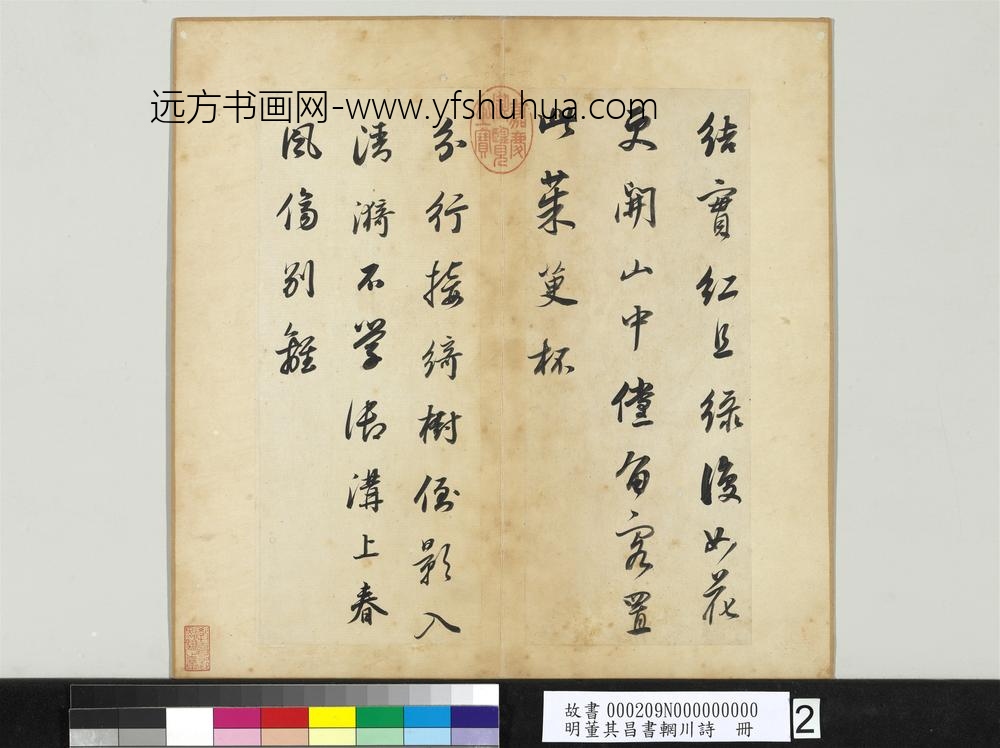 远方书画网-www.yfshuhua.com
結實紅且綠復如花
更開山中儻留客置
此茱萸杯
分行接綺樹倒影入
清漪不學御溝上春
風傷別離
嘉慶御覽之寶
故書 000209N000000000
明董其昌書輞川詩 冊
2